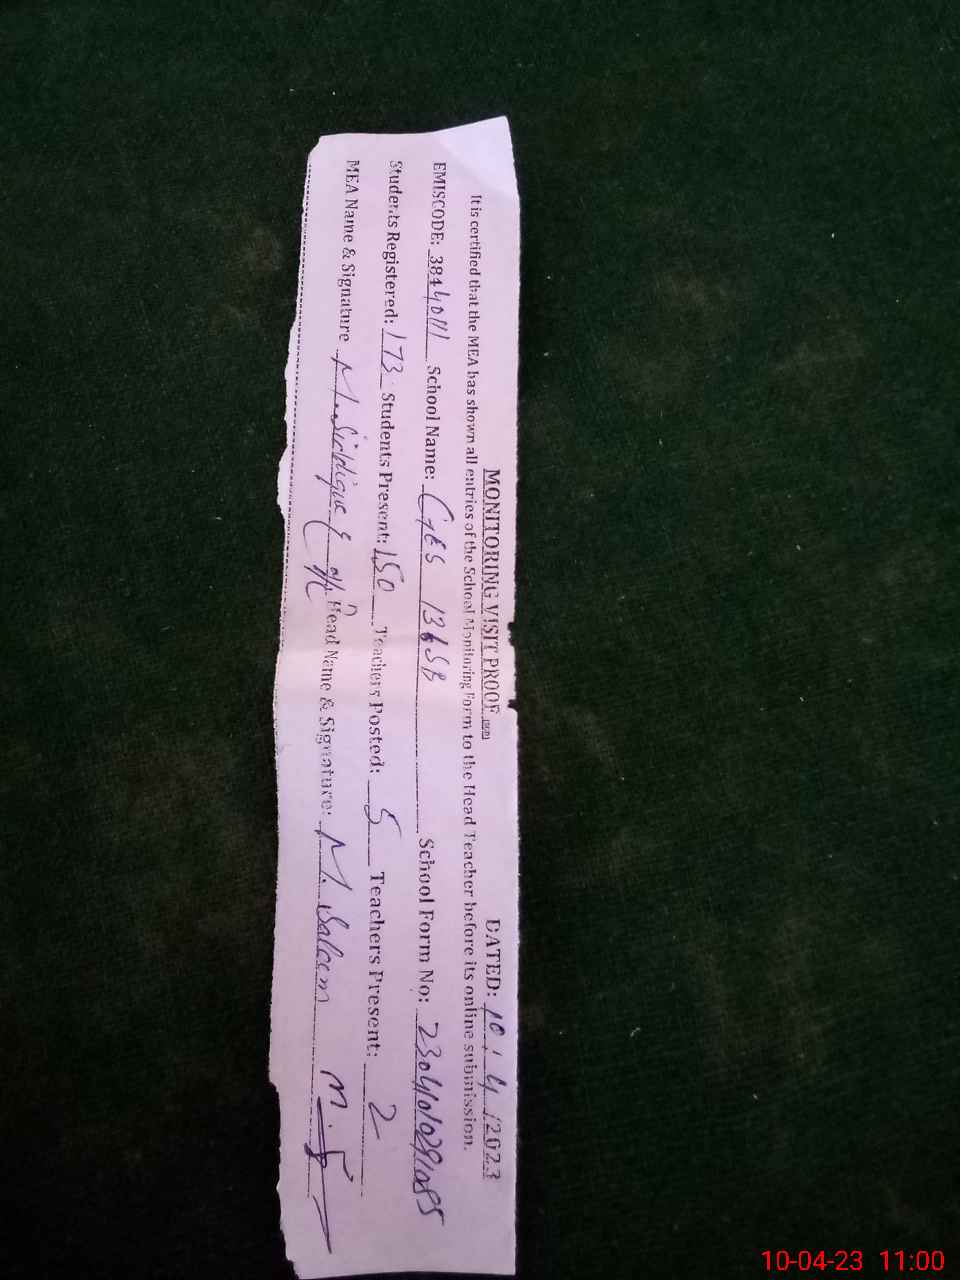 MONITORING VISIT PROOF DATED: 10/4/2023
It is certified that the MEA has shown all entries of the School Monitoring Form to the Head Teacher before its online submission.
EMISCODE: 38440111 School Name: GES 136SB School Form No:
Students Registered: 173 Students Present: 150 Teachers Posted: 5 Teachers Present: 2
MEA Name & Signature M. Siddique Head Name & Signature: M. Saleem
10-04-23 11:00